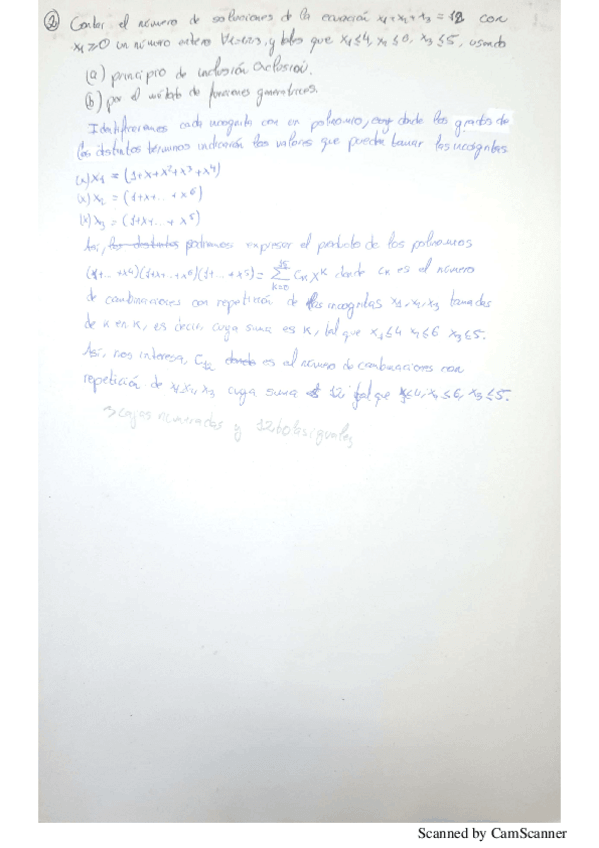 ② Contar el número de soluciones de la ecuación x₁+x₂+x₃ = 12 con
x₁ ≥ 0 un número entero y tales que x₁≤4, x₂≤6, x₃≤5, usando
(a) principio de inclusión exclusión.
(b) por el método de funciones generatrices.
Identificaremos cada incógnita con un polinomio, donde los grados de
los distintos términos indicarán los valores que pueden tomar las incógnitas
(x) x₁ = (1+x+x²+x³+x⁴)
(x) x₂ = (1+x+...+x⁶)
(x) x₃ = (1+x+...+x⁵)
Así, los distintos podremos expresar el producto de los polinomios
(1+...+x⁴)(1+x+...+x⁶)(1+...+x⁵) = Σ k=0 15 Cₖ Xᵏ donde cₖ es el número
de combinaciones con repetición de las incógnitas x₁, x₂, x₃ tomadas
de k en k, es decir, cuya suma es k, tal que x₁≤4 x₂≤6 x₃≤5.
Así, nos interesa, C₁₂ donde es el número de combinaciones con
repetición de x₁, x₂, x₃ cuya suma es 12 tal que x₁≤4, x₂≤6, x₃≤5.
3 cajas numeradas y 12 bolas iguales
Scanned by CamScanner